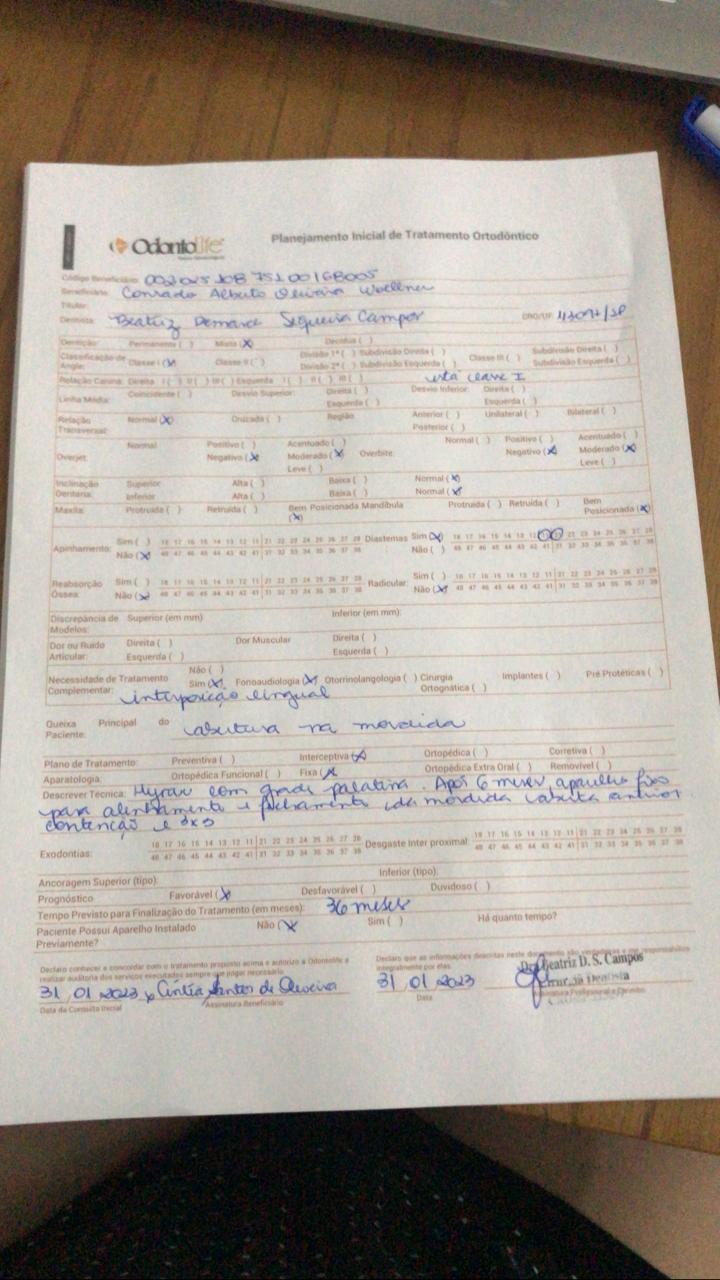 OdontoLife
Planejamento Inicial de Tratamento Ortodôntico
Código Beneficiário:
Beneficiário: Conrado Alberto Oliveira Woellner
Titular:
Dentista: Beatriz Demarce Segueira Campos CRO/UF:
Dentição: Permanente ( ) Mista (x) Decídua ( )
Classificação de Angle: Classe I (x) Classe II ( ) Divisão 1ª ( ) Subdivisão Direita ( ) Classe III ( ) Subdivisão Direita ( )
Divisão 2ª ( ) Subdivisão Esquerda ( ) Subdivisão Esquerda ( )
Relação Canina: Direita I ( ) II ( ) III ( ) Esquerda I ( ) II ( ) III ( ) classe I
Linha Média: Coincidente ( ) Desvio Superior: Direita ( ) Desvio Inferior: Direita ( )
Esquerda ( ) Esquerda ( )
Relação Transversal: Normal (x) Cruzada ( ) Região Anterior ( ) Unilateral ( ) Bilateral ( )
Posterior ( )
Normal Positivo ( ) Acentuado ( ) Normal ( ) Positivo ( ) Acentuado ( )
Overjet: Negativo (x) Moderado (x) Overbite: Negativo (x) Moderado (x)
Leve ( ) Leve ( )
Inclinação Superior Alta ( ) Baixa ( ) Normal (x)
Dentária: Inferior Alta ( ) Baixa ( ) Normal (x)
Maxila: Protruída ( ) Retruída ( ) Bem Posicionada (x) Mandíbula Protruída ( ) Retruída ( ) Bem Posicionada (x)
Sim ( ) 18 17 16 15 14 13 12 11 21 22 23 24 25 26 27 28 Diastemas Sim (x) 18 17 16 15 14 13 12 11 21 22 23 24 25 26 27 28
Apinhamento: Não (x) 48 47 46 45 44 43 42 41 31 32 33 34 35 36 37 38 Não ( ) 48 47 46 45 44 43 42 41 31 32 33 34 35 36 37 38
Reabsorção Sim ( ) 18 17 16 15 14 13 12 11 21 22 23 24 25 26 27 28 Radicular: Sim ( ) 18 17 16 15 14 13 12 11 21 22 23 24 25 26 27 28
Óssea: Não (x) 48 47 46 45 44 43 42 41 31 32 33 34 35 36 37 38 Não (x) 48 47 46 45 44 43 42 41 31 32 33 34 35 36 37 38
Discrepância de Modelos: Superior (em mm) Inferior (em mm):
Dor ou Ruído Articular: Direita ( ) Dor Muscular Direita ( )
Esquerda ( ) Esquerda ( )
Não ( )
Necessidade de Tratamento Complementar: Sim (x) Fonoaudiologia (x) Otorrinolangologia ( ) Cirurgia Ortognática ( ) Implantes ( ) Pré Protéticas ( )
interposição lingual
Queixa Principal do Paciente: abertura na mordida
Plano de Tratamento: Preventiva ( ) Interceptiva (x) Ortopédica ( ) Corretiva ( )
Aparatologia: Ortopédica Funcional ( ) Fixa (x) Ortopédica Extra Oral ( ) Removível ( )
Descrever Técnica: Hyrax com grade palatina. Após 6 meses, aparelho fixo
para alinhamento e fechamento da mordida aberta anterior
contenção e 3x3
Exodontias: 18 17 16 15 14 13 12 11 21 22 23 24 25 26 27 28 Desgaste Inter proximal: 18 17 16 15 14 13 12 11 21 22 23 24 25 26 27 28
48 47 46 45 44 43 42 41 31 32 33 34 35 36 37 38 48 47 46 45 44 43 42 41 31 32 33 34 35 36 37 38
Ancoragem Superior (tipo): Inferior (tipo):
Prognóstico Favorável (x) Desfavorável ( ) Duvidoso ( )
Tempo Previsto para Finalização do Tratamento (em meses): 36 meses
Paciente Possui Aparelho Instalado Previamente? Não (x) Sim ( ) Há quanto tempo?
Declaro conhecer e concordar com o tratamento proposto acima e autorizo a Odontolife a
realizar auditoria dos serviços executados sempre que julgar necessário
Declaro que as informações descritas neste documento são verdadeiras e me responsabilizo
integralmente por elas.
31 01 2023 x Cíntia Santos de Oliveira
Data da Consulta Inicial Assinatura Beneficiário
31 01 2023
Data
Dra. Beatriz D. S. Campos
Cirurgiã Dentista